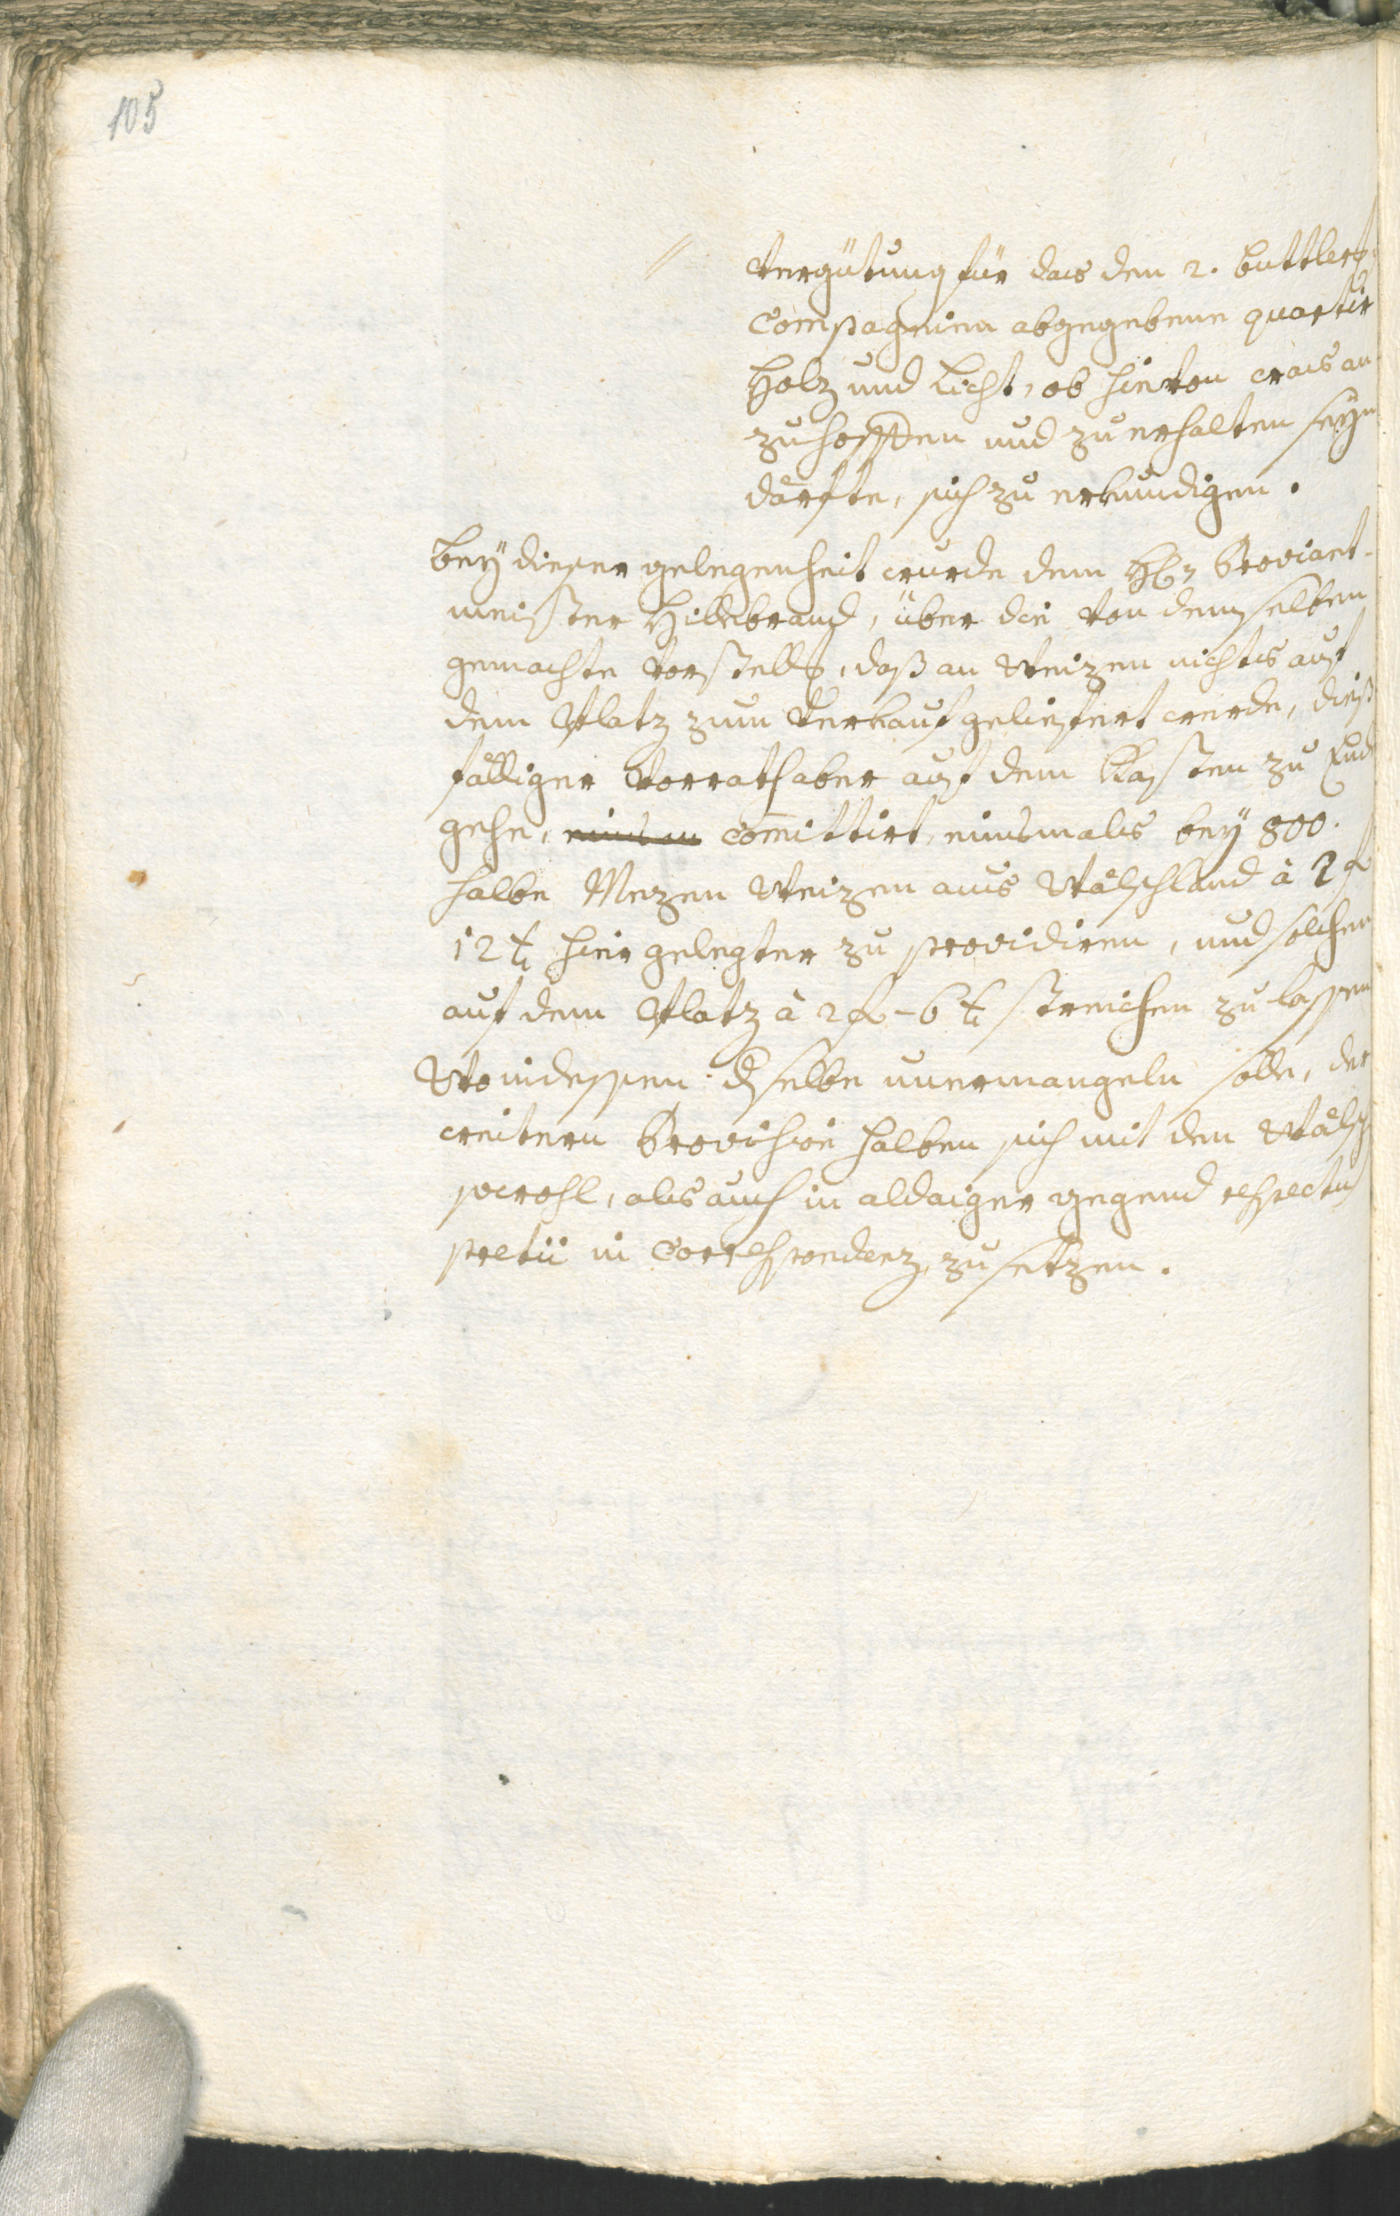 105
vergütung für das den 2. buttler¬
Compagnien abgegebene quartir
Holz und liecht, ob hievon was an¬
zuhoffen und zu erhalten seyn
därfte, sich zu erkundigen.
bey dieser gelegenheit wurde dem H: Proviant¬
meister Hildebrand, über die von demselben
gemachte Vorstellg, daß an Weizen nichts auf
dem Platz zum Verkauf geliefert werde, dieß¬
fälliger Vorrath aber auf dem Kasten zu End
gehe, committirt, einsmals bey 800.
halbe Mezen Weizen aus Wälschland à 2 f
12 x hier gelegter zu providiren, und solchen
auf dem Platz à 2 f - 6 x streichen zu lassen
Wo indessen dselbe unermangeln solle, der
weitern Provision halben sich mit den Wälsch
sowohl, als auch in aldaiger gegend respectu
pretii in Correspondenz zu setzen.